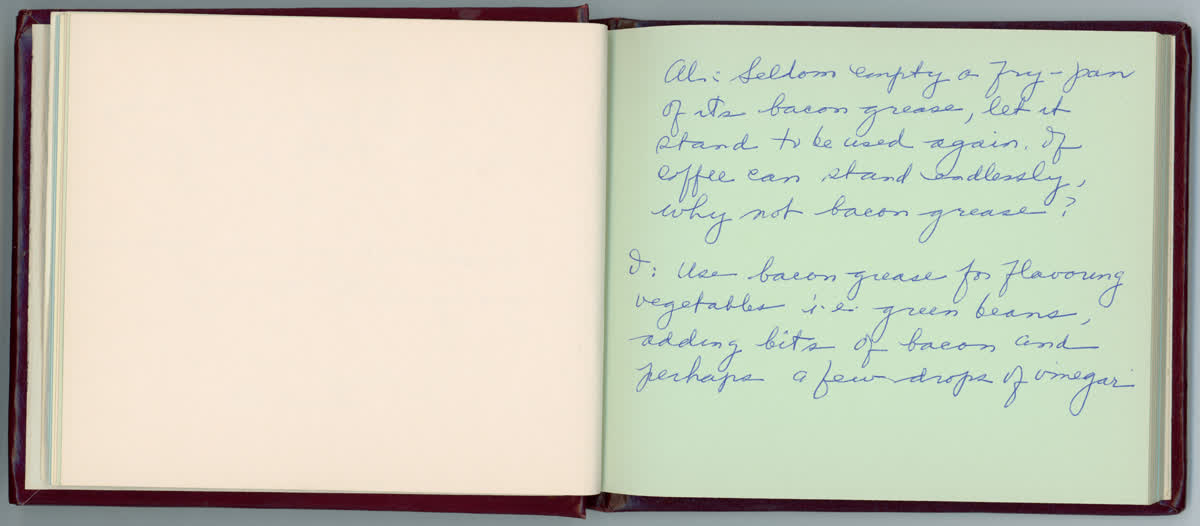 Al.: Seldom empty a fry-pan
of its bacon grease, let it
stand to be used again. If
coffee can stand endlessly,
why not bacon grease?
I: Use bacon grease for flavouring
vegetables i.e. green beans,
adding bits of bacon and
perhaps a few drops of vinegar